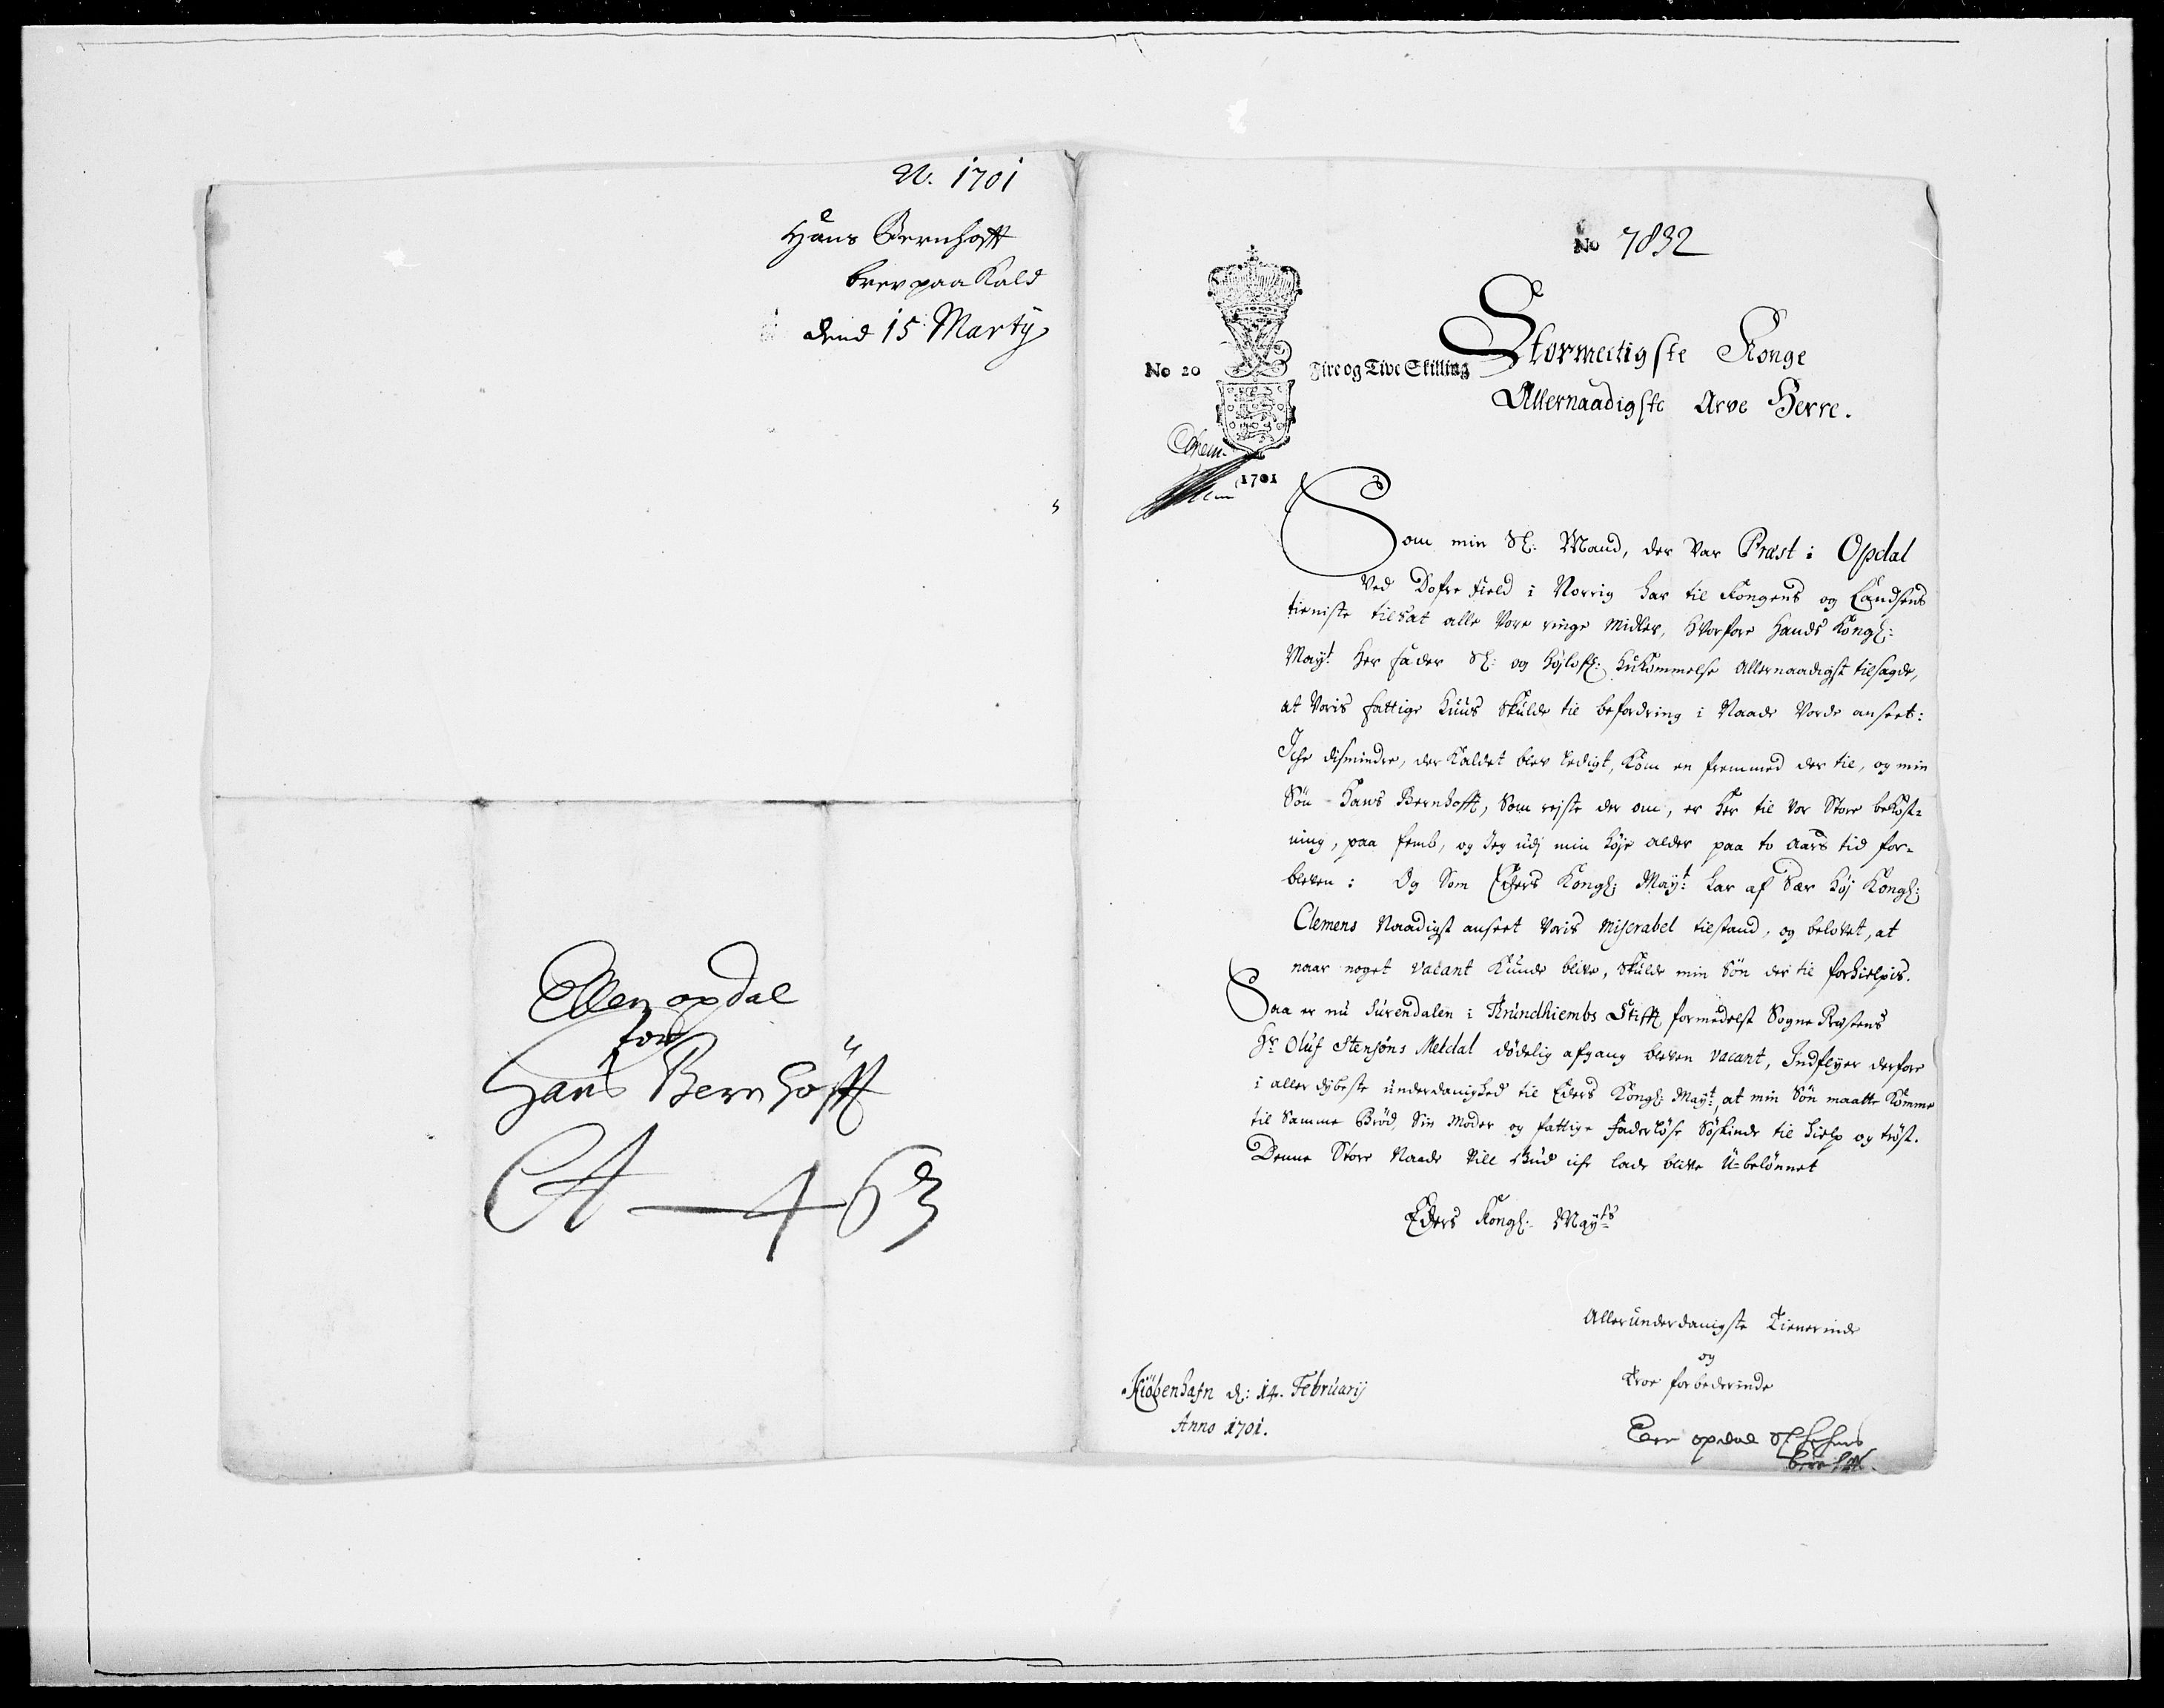 N. 1701
Hans Bernhofft
brev paa Kald
dend 15 Martij
Ellen opdal
for
Hans Bernhöfft
A — 4 63
No 7832
No 20 Fire og Tive Skilling
1701
Stormectigste Konge
Allernaadigste Arve Herre.
Som min Sl: Mand, der var Præst i Opdal
ved Dofre Field i Norrig har til Kongens og Landsens
tieniste tilsat alle vore ringe midler, hvorfore Hands Kongl:
Mayt: Her fader Sl: og høylofl: hukommelse allernaadigst tilsagde,
at voris fattige huus skulde til befodring i Naade vorde anseet:
Iche dismindre, der Kaldet blev ledigt, kom en fremmed der til, og min
Sön Hans Bernhofft, som rejste der om, er her til vor store bekost-
ning, paa femb, og Jeg udj min høje alder paa to Aars tid for-
bleven: Og som Eders Kongl: Mayt: har af sær høj Kongl:
Clemens Naadigst anseet voris miserabel tilstand, og belovet, at
naar noget vacant kunde blive, skulde min Sön der til forhielpis.
Saa er nu Surendalen i Trundhiembs Stifft formedelst Sogne Præstens
Hr Oluf Stensöns Meldal dödelig afgang bleven vacant, Indflyer derfore
i aller dybeste underdanighed til Eders Kongl: Mayt:, at min Sön maatte komme
til samme Bröd, sin Moder og fattige faderlöse Söskinde til hielp og tröst.
Denne store Naade vill Gud iche lade blive U-belönnet
Eders Kongl: Mayts
Allerunderdanigste Tienerinde
og
troe forbederinde
Kiöbenhafn d: 14. Februarij
Anno 1701.
Elen opdal Sl